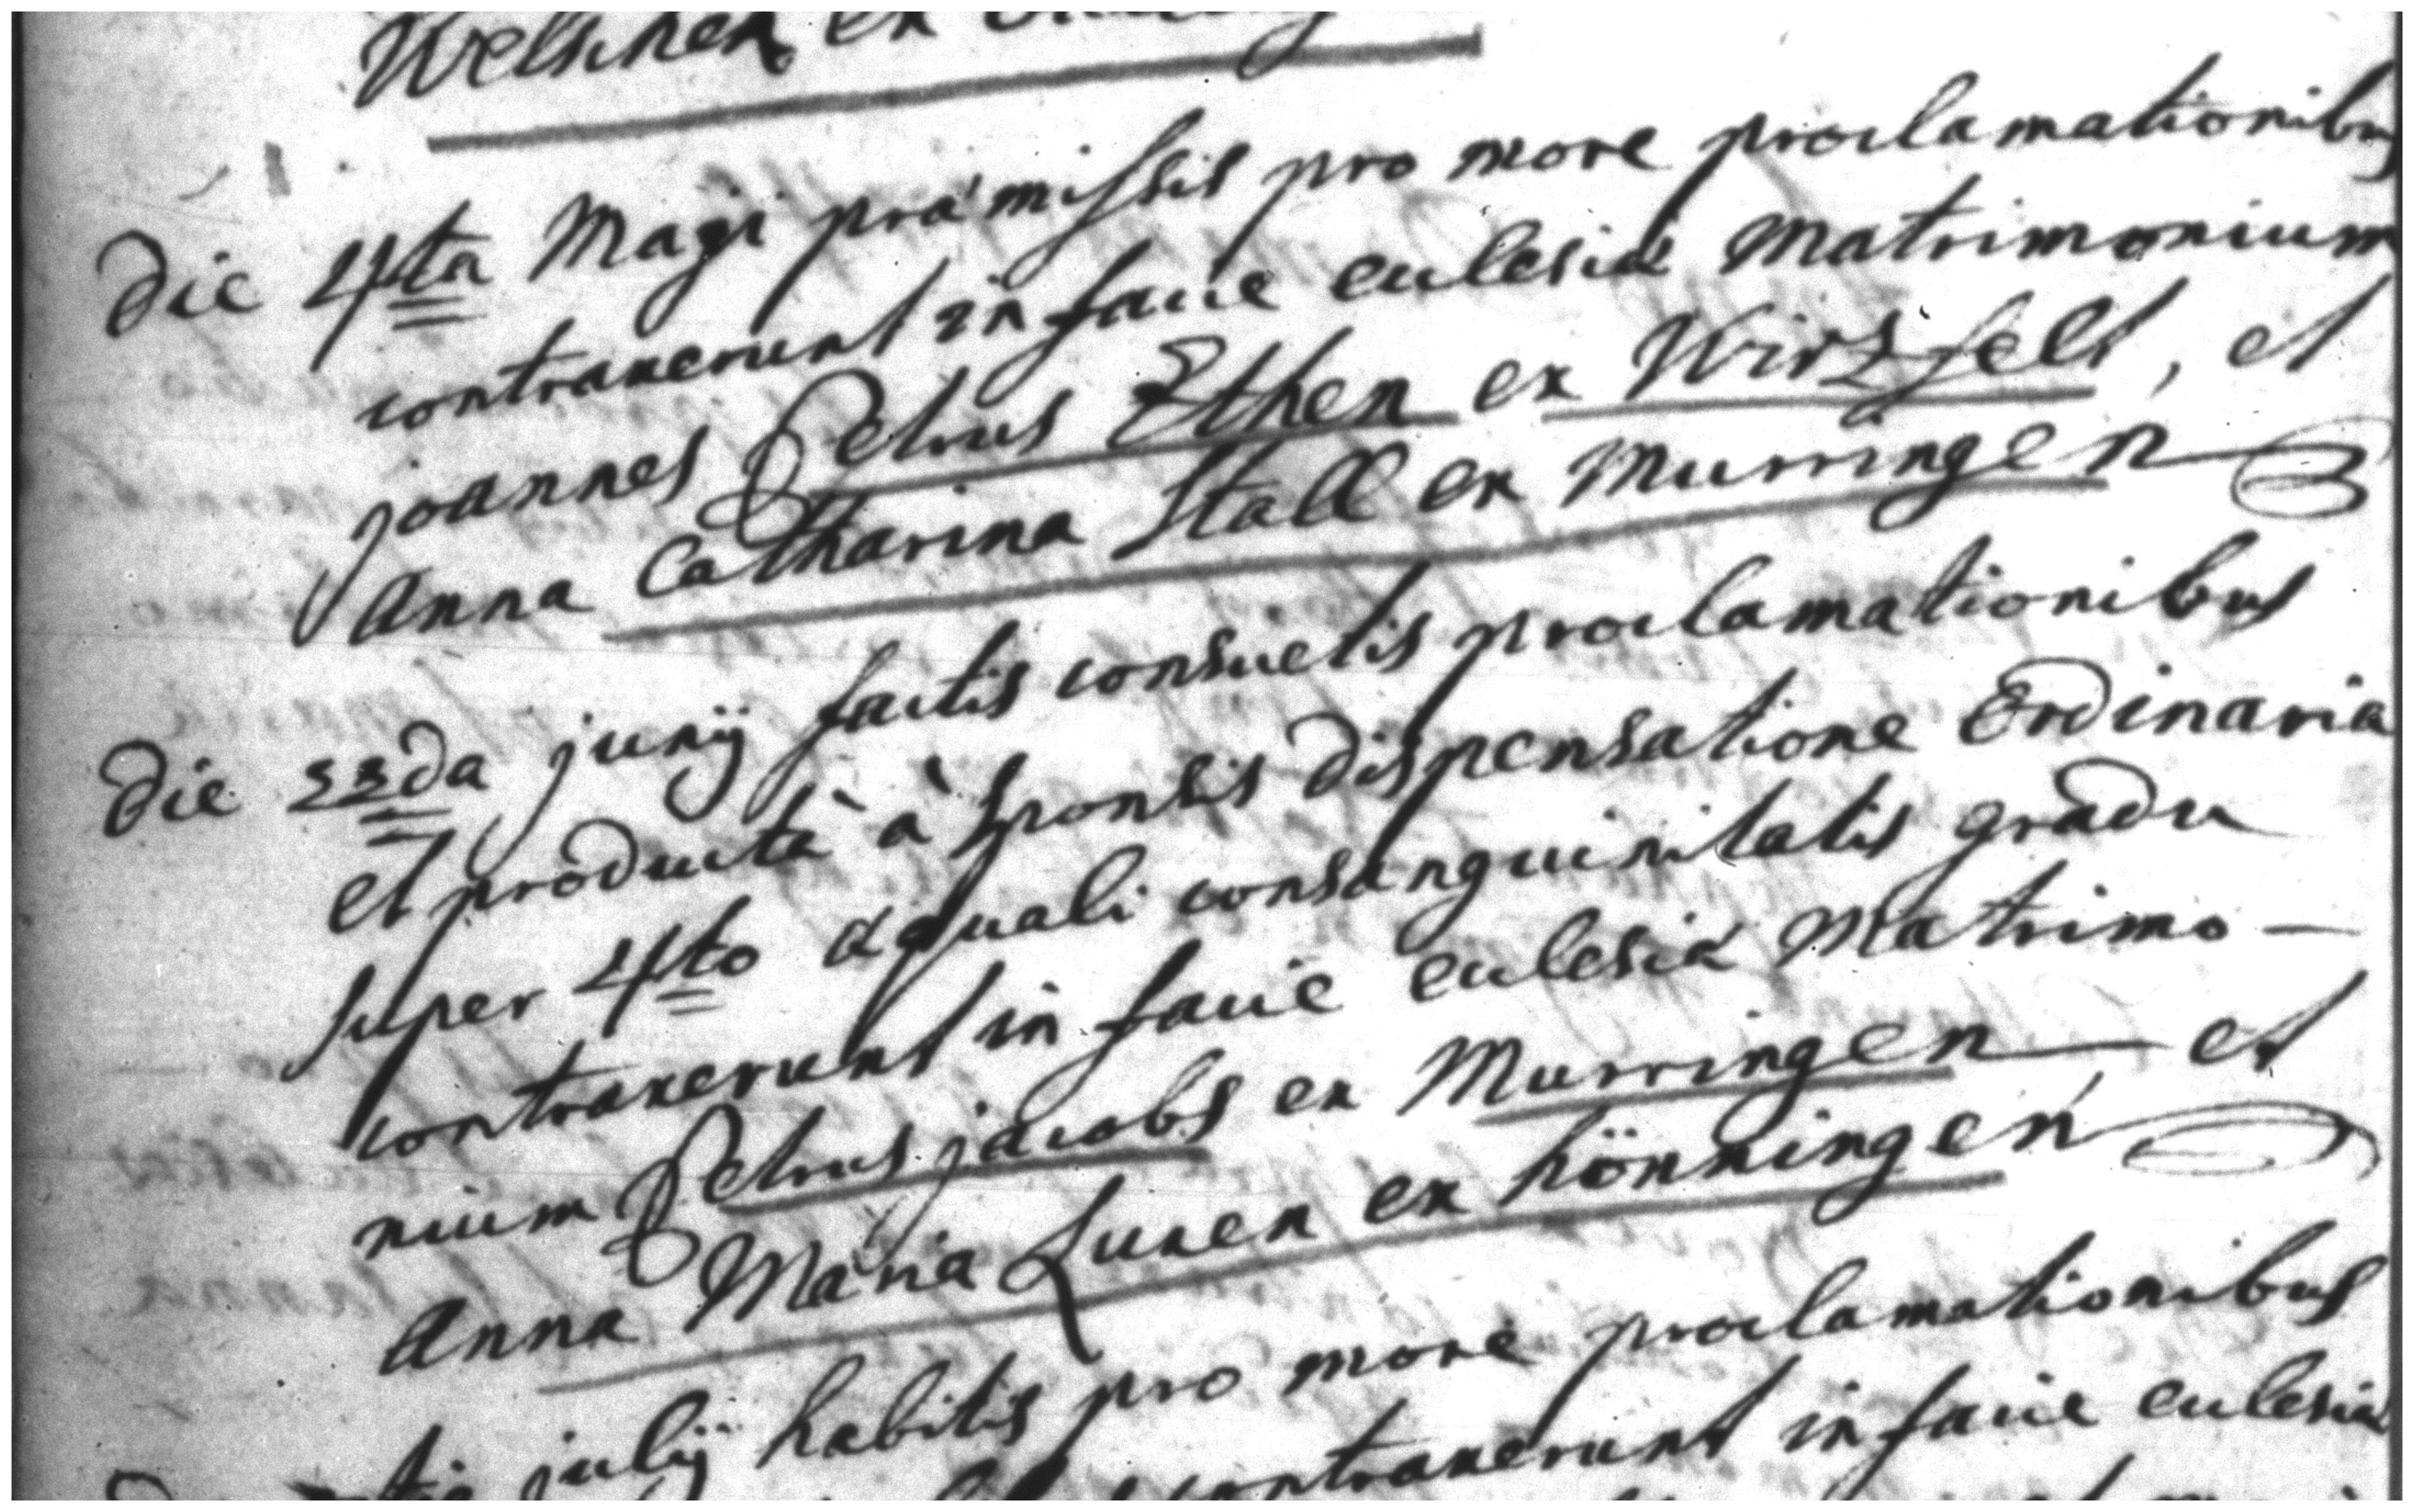 Welschen ex
die 4ta Magi præmissis pro more proclamationibus
contraxerunt in facie ecclesiæ Matrimonium
joannes Petrus Ethen ex Wirzfelt, et
Anna Catharina Stall ex Murringen
die 22da junij factis consuetis proclamationibus
et productâ à sponsis dispensatione Ordinaria
super 4to æquali consanguinitatis gradu
contraxerunt in facie ecclesiæ Matrimo-
nium Petrus jacobs ex Murringen et
Anna Maria Luxen ex hönningen
julij habitis pro more proclamationibus
contraxerunt in facie ecclesiæ